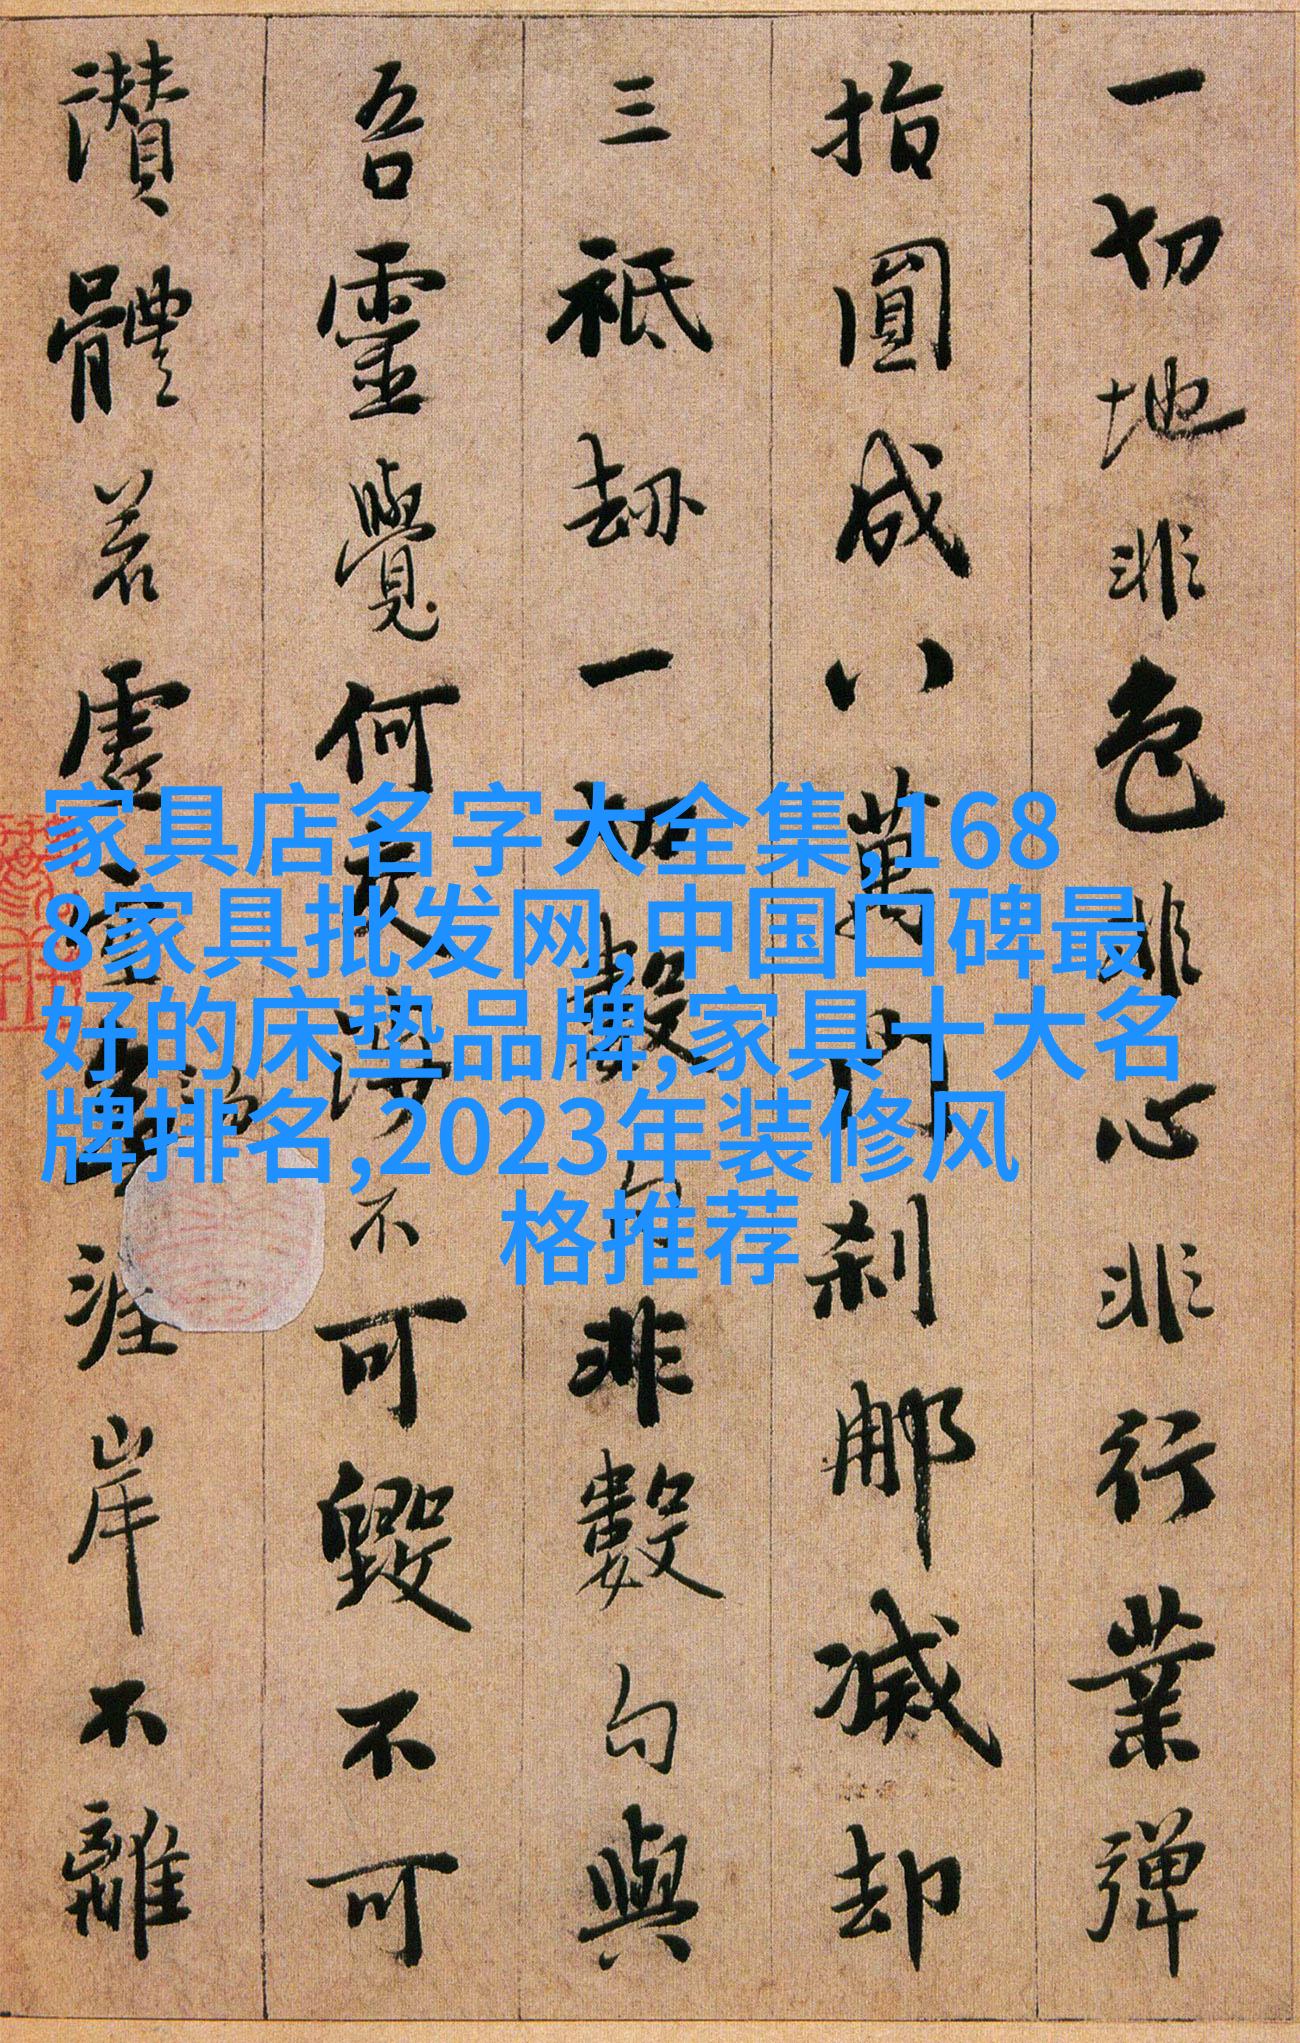 一切地非色非心非行業彈
指圓成八萬門刹那滅却
三祇劫一切數句非數句與
吾靈覺何交涉不可毀不可
讚體若虛空勿涯岸不離
家具店名字大全集,168
8家具批发网,中国口碑最
好的床垫品牌,家具十大名
牌排名,2023年装修风
格推荐